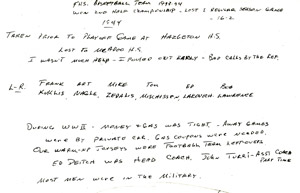 FHS. BASKETBALL TEAM 1943-44
WON 2ND HALF CHAMPIONSHIP - LOST 1 REGULAR SEASON GAME
1944 16-2
TAKEN PRIOR TO PLAYING GAME AT HAZLETON H.S.
LOST TO McADOO H.S.
I WASN'T MUCH HELP - I FOULED OUT EARLY - BAD CALLS BY THE REF.
L-R. FRANK ART MIKE TOM ED BOB
NAGLE, LAWRENCE
DURING WW II - MONEY & GAS WAS TIGHT - AWAY GAMES
WERE BY PRIVATE CAR. GAS COUPONS WERE NEEDED.
OUR WARM-UP JERSEYS WERE FOOTBALL TEAM LEFTOVERS
ED DEITCH WAS HEAD COACH, JOHN TURRI - ASST COACH
PART TIME
MOST MEN WERE IN THE MILITARY.